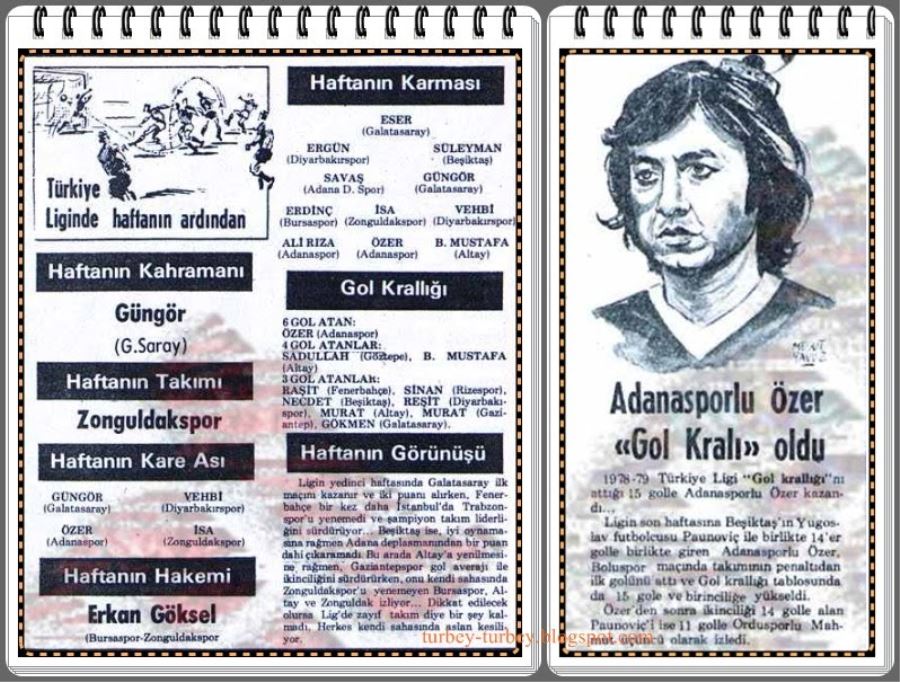 Türkiye
Liginde haftanın ardından
Haftanın Kahramanı
Güngör
(G.Saray)
Haftanın Takımı
Zonguldakspor
Haftanın Kare Ası
GÜNGÖR VEHBİ
(Galatasaray) (Diyarbakırspor)
ÖZER İSA
(Adanaspor) (Zonguldakspor)
Haftanın Hakemi
Erkan Göksel
(Bursaspor-Zonguldakspor
Haftanın Karması
ESER
(Galatasaray)
ERGÜN SÜLEYMAN
(Diyarbakırspor) (Beşiktaş)
SAVAŞ GÜNGÖR
(Adana D. Spor) (Galatasaray)
ERDİNÇ İSA VEHBİ
(Bursaspor) (Zonguldakspor) (Diyarbakırspor)
ALİ RIZA ÖZER B. MUSTAFA
(Adanaspor) (Adanaspor) (Altay)
Gol Krallığı
6 GOL ATAN:
ÖZER (Adanaspor)
4 GOL ATANLAR:
SADULLAH (Göztepe), B. MUSTAFA
(Altay)
3 GOL ATANLAR:
RAŞİT (Fenerbahçe), SİNAN (Rizespor),
NECDET (Beşiktaş), REŞİT (Diyarbakı-
spor), MURAT (Altay), MURAT (Gazi-
antep), GÖKMEN (Galatasaray).
Haftanın Görünüşü
Ligin yedinci haftasında Galatasaray ilk
maçını kazanır ve iki puanı alırken, Fener-
bahçe bir kez daha İstanbul'da Trabzon-
spor'u yenemedi ve şampiyon takım liderli-
ğini sürdürüyor... Beşiktaş ise, iyi oynama-
sına rağmen Adana deplasmanından bir puan
dahi çıkaramadı. Bu arada Altay'a yenilmesi-
ne rağmen, Gaziantepspor gol averajı ile
ikinciliğini sürdürürken, onu kendi sahasında
Zonguldakspor'u yenemeyen Bursaspor, Al-
tay ve Zonguldak izliyor... Dikkat edilecek
olursa Lig'de zayıf takım diye bir şey kal-
madı. Herkes kendi sahasında aslan kesili-
yor.
turbey-turbey.blogspot.com
Adanasporlu Özer
«Gol Kralı» oldu
1978-79 Türkiye Ligi "Gol krallığı"nı
attığı 15 golle Adanasporlu Özer kazan-
dı...
Ligin son haftasına Beşiktaş'ın Yugos-
lav futbolcusu Paunoviç ile birlikte 14'er
golle birlikte giren Adanasporlu Özer,
Boluspor maçında takımının penaltıdan
ilk golünü attı ve Gol krallığı tablosunda
da 15 gole ve birinciliğe yükseldi.
Özer'den sonra ikinciliği 14 golle alan
Paunoviç'i ise 11 golle Ordusporlu Mah-
mut üçüncü olarak izledi.